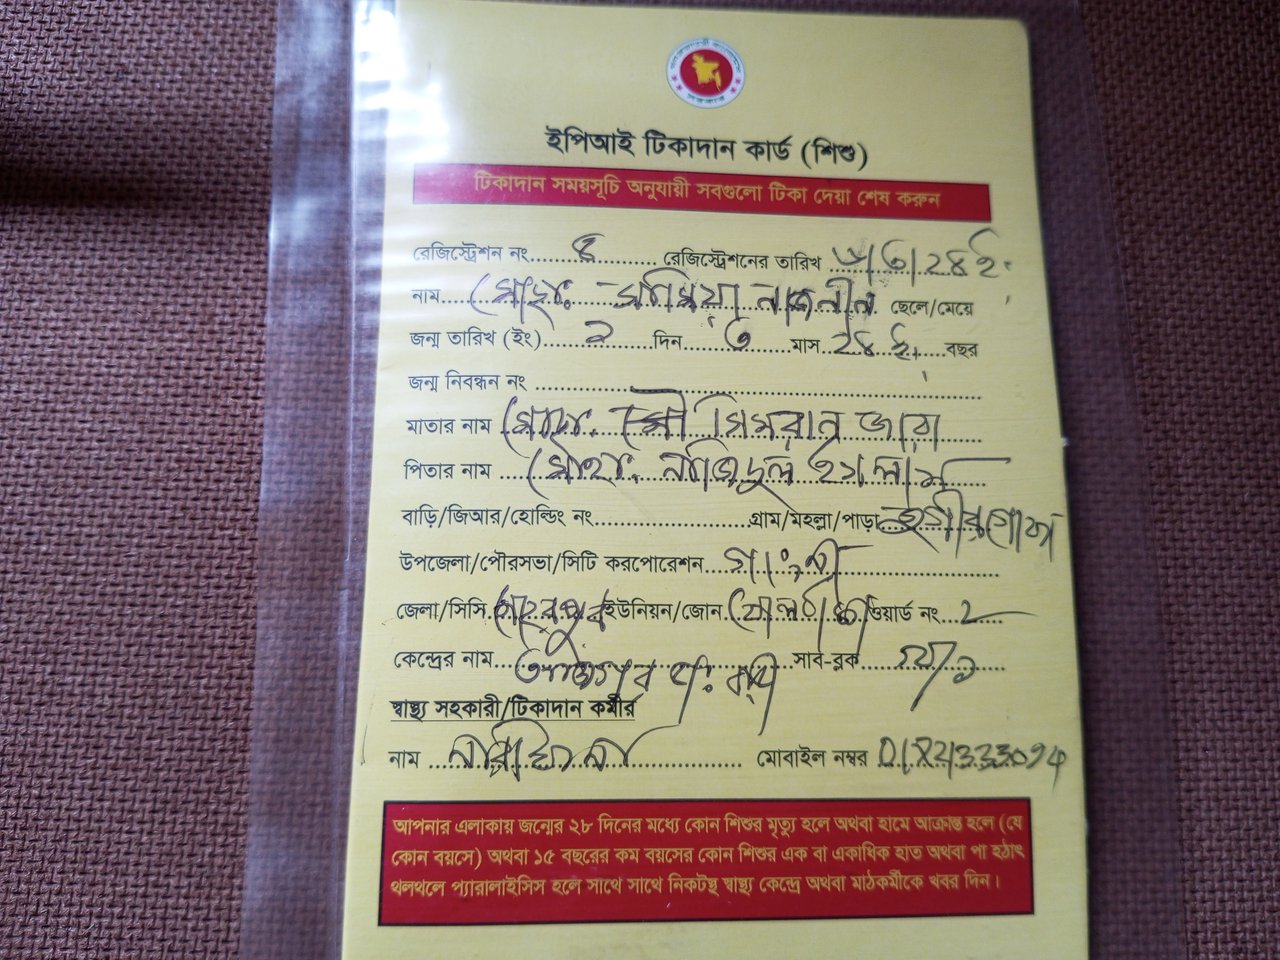 ইপিআই টিকাদান কার্ড (শিশু)
টিকাদান সময়সূচি অনুযায়ী সবগুলো টিকা দেয়া শেষ করুন
রেজিস্ট্রেশন নং ৪ রেজিস্ট্রেশনের তারিখ
নাম মোছা: নাজনীন ছেলে/মেয়ে
জন্ম তারিখ (ইং) ১ দিন ৩ মাস ২৪ ইং বছর
জন্ম নিবন্ধন নং
মাতার নাম মোছা: মৌ সিমরান জারা
পিতার নাম মোহা: নাজিদুল ইসলাম
বাড়ি/জিআর/হোল্ডিং নং গ্রাম/মহল্লা/পাড়া
উপজেলা/পৌরসভা/সিটি করপোরেশন গাংনী
জেলা/সিসি মেহেরপুর ইউনিয়ন/জোন ওয়ার্ড নং ২
কেন্দ্রের নাম সাব-ব্লক
স্বাস্থ্য সহকারী/টিকাদান কর্মীর
নাম মোবাইল নম্বর
আপনার এলাকায় জন্মের ২৮ দিনের মধ্যে কোন শিশুর মৃত্যু হলে অথবা হামে আক্রান্ত হলে (যে
কোন বয়সে) অথবা ১৫ বছরের কম বয়সের কোন শিশুর এক বা একাধিক হাত অথবা পা হঠাৎ
থলথলে প্যারালাইসিস হলে সাথে সাথে নিকটস্থ স্বাস্থ্য কেন্দ্রে অথবা মাঠকর্মীকে খবর দিন।